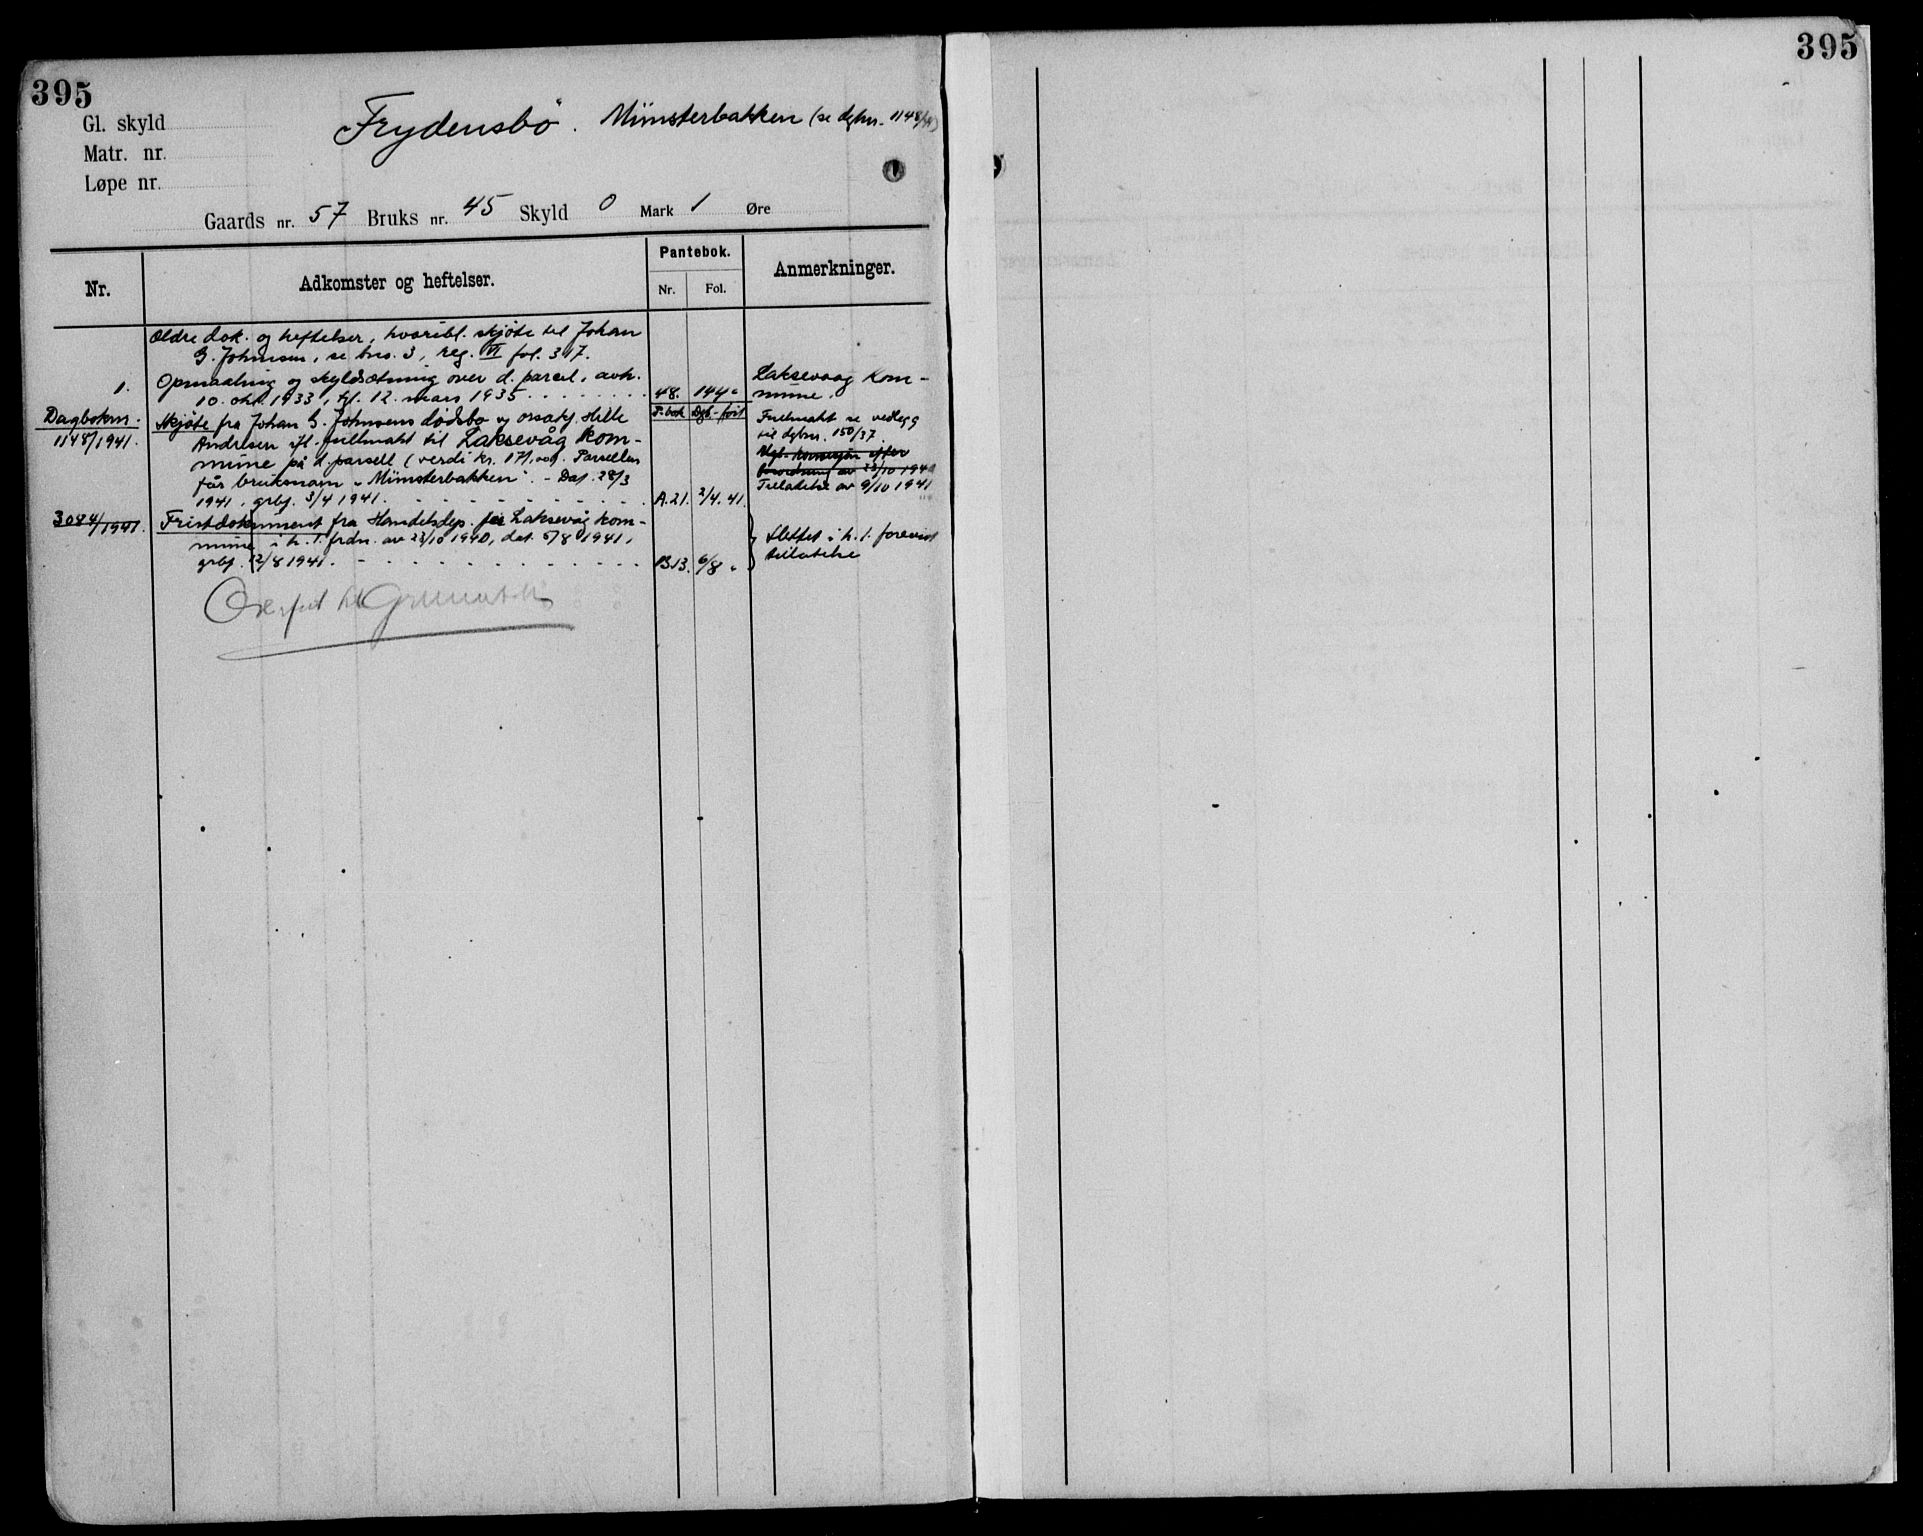 395
395
Gl. skyld
Frydensbö. Münsterbakken (se dgbnr. 1148/41)
Matr. nr.
Løpe nr.
Gaards nr. 57 Bruks nr. 45 Skyld 0 Mark 1 Øre
Nr. Adkomster og heftelser. Pantebok. Anmerkninger.
Nr. Fol.
Ældre dok. og heftelser, hvoribl. skjöte til Johan
G. Johnsen, se bnr. 3, reg. VI fol. 317.
1. Opmaaling og skyldsætning over d. parcel, avh.
10. okt. 1933, tgl. 12. mars 1935 48. 144
Laksevaag Kom-
mune.
Dagboknr.
1148/1941.
P.bok Dgb.-ført
Skjöte fra Johan G. Johnsens dödsbo og Helle
Andresen ifl. fullmakt til Laksevåg kom-
mune på d. parsell (verdi kr. Parsellen
får bruksnavn "Münsterbakken". - Dat. 28/3
1941, grbf. 3/4 1941. A.21. 2/4. 41.
Fullmakt se vedlegg
til dgbnr. 150/37.
konsesjon efter
forordning av 23/10 1940
Tillatelse av 9/10 1941
3084/1941. Fristdokument fra Handelsdep. for Laksevåg kom-
mune i h. t. frdn. av 23/10 1940, dat. 5/8 1941,
grbf. 12/8 1941. B13. 6/8 "
Slettet i h. t. forevist
tillatelse
Overført til